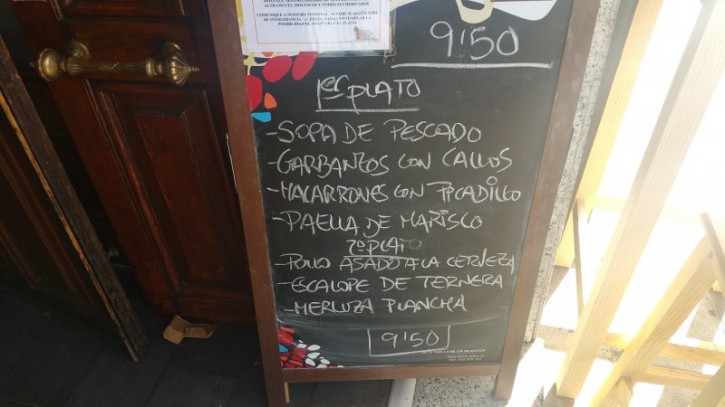 9'50
1er PLATO
-SOPA DE PESCADO
-GARBANZOS CON CALLOS
-MACARRONES CON PICADILLO
-PAELLA DE MARISCO
2º PLATO
-POLLO ASADO A LA CERVEZA
-ESCALOPE DE TERNERA
-MERLUZA PLANCHA
9'50